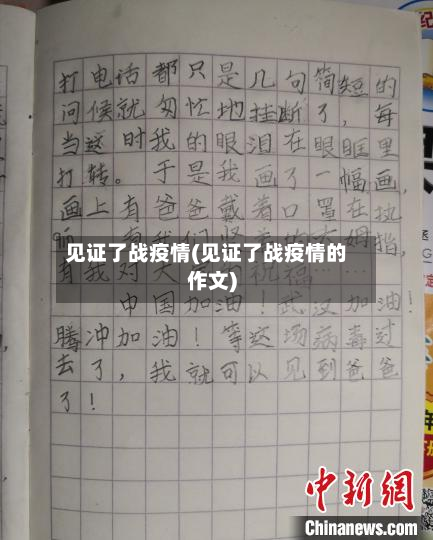 打电话都只是几句简短的
问候就匆忙地挂断了，每
当这时我的眼泪在眼眶里
打转。于是我画了一幅画，
画上有爸爸戴着口罩在执
勤
大姆指，
有我对大
祝福……
见证了战疫情(见证了战疫情的
作文)
中国加油！武汉加油！
腾冲加油！等这场病毒过
去了，我就可以见到爸爸
了！
中新网
Chinanews.com